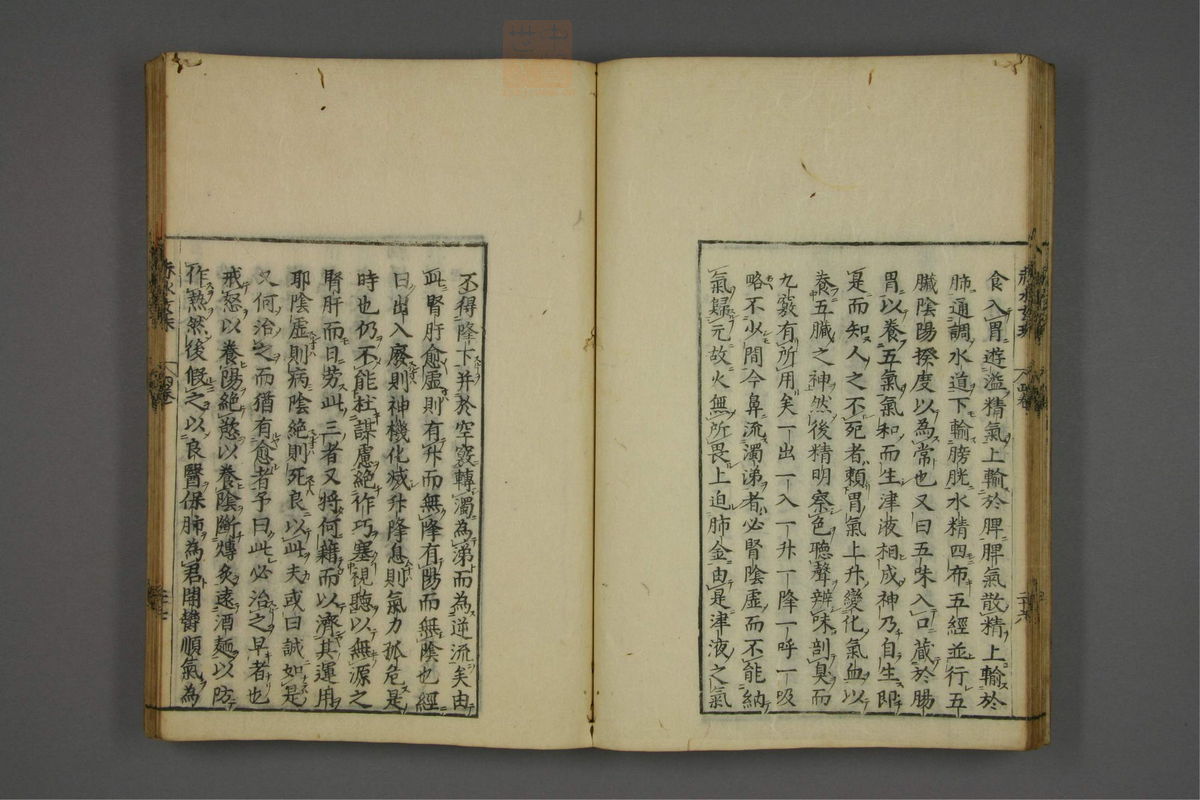 食入胃遊溢精氣上輸於脾脾氣散精上輸於
肺通調水道下輸膀胱水精四布五經並行五
臓陰陽揆度以為常也又曰五味入口蔵於腸
胃以養五氣氣和而生津液相成神乃自生即
是而知人之不死者頼胃氣上升變化氣血以
養五臓之神然後精明察色聴聲辨味剖臭而
九竅有所用矣一出一入一升一降一呼一吸
略不少間今鼻流濁涕者必腎陰虚而不能納
氣歸元故火無所畏上迫肺金由是津液之氣
不得降下并於空竅轉濁為涕而為逆流矣由
此腎肝愈虚則有升而無降有陽而無陰也經
曰出入廢則神機化滅升降息則氣力孤危是
時也仍不能杜謀慮絶作巧塞視聴以無源之
腎肝而日劳此三者又将何藉而以濟其運用
耶陰虚則病陰絶則死良以此夫或曰誠如是
又何治之而猶有愈者予曰此必治之早者也
戒怒以養陽絶慾以養陰断煿炙遠酒麺以防
作熱然後假之以良醫保肺為君開鬱順氣為